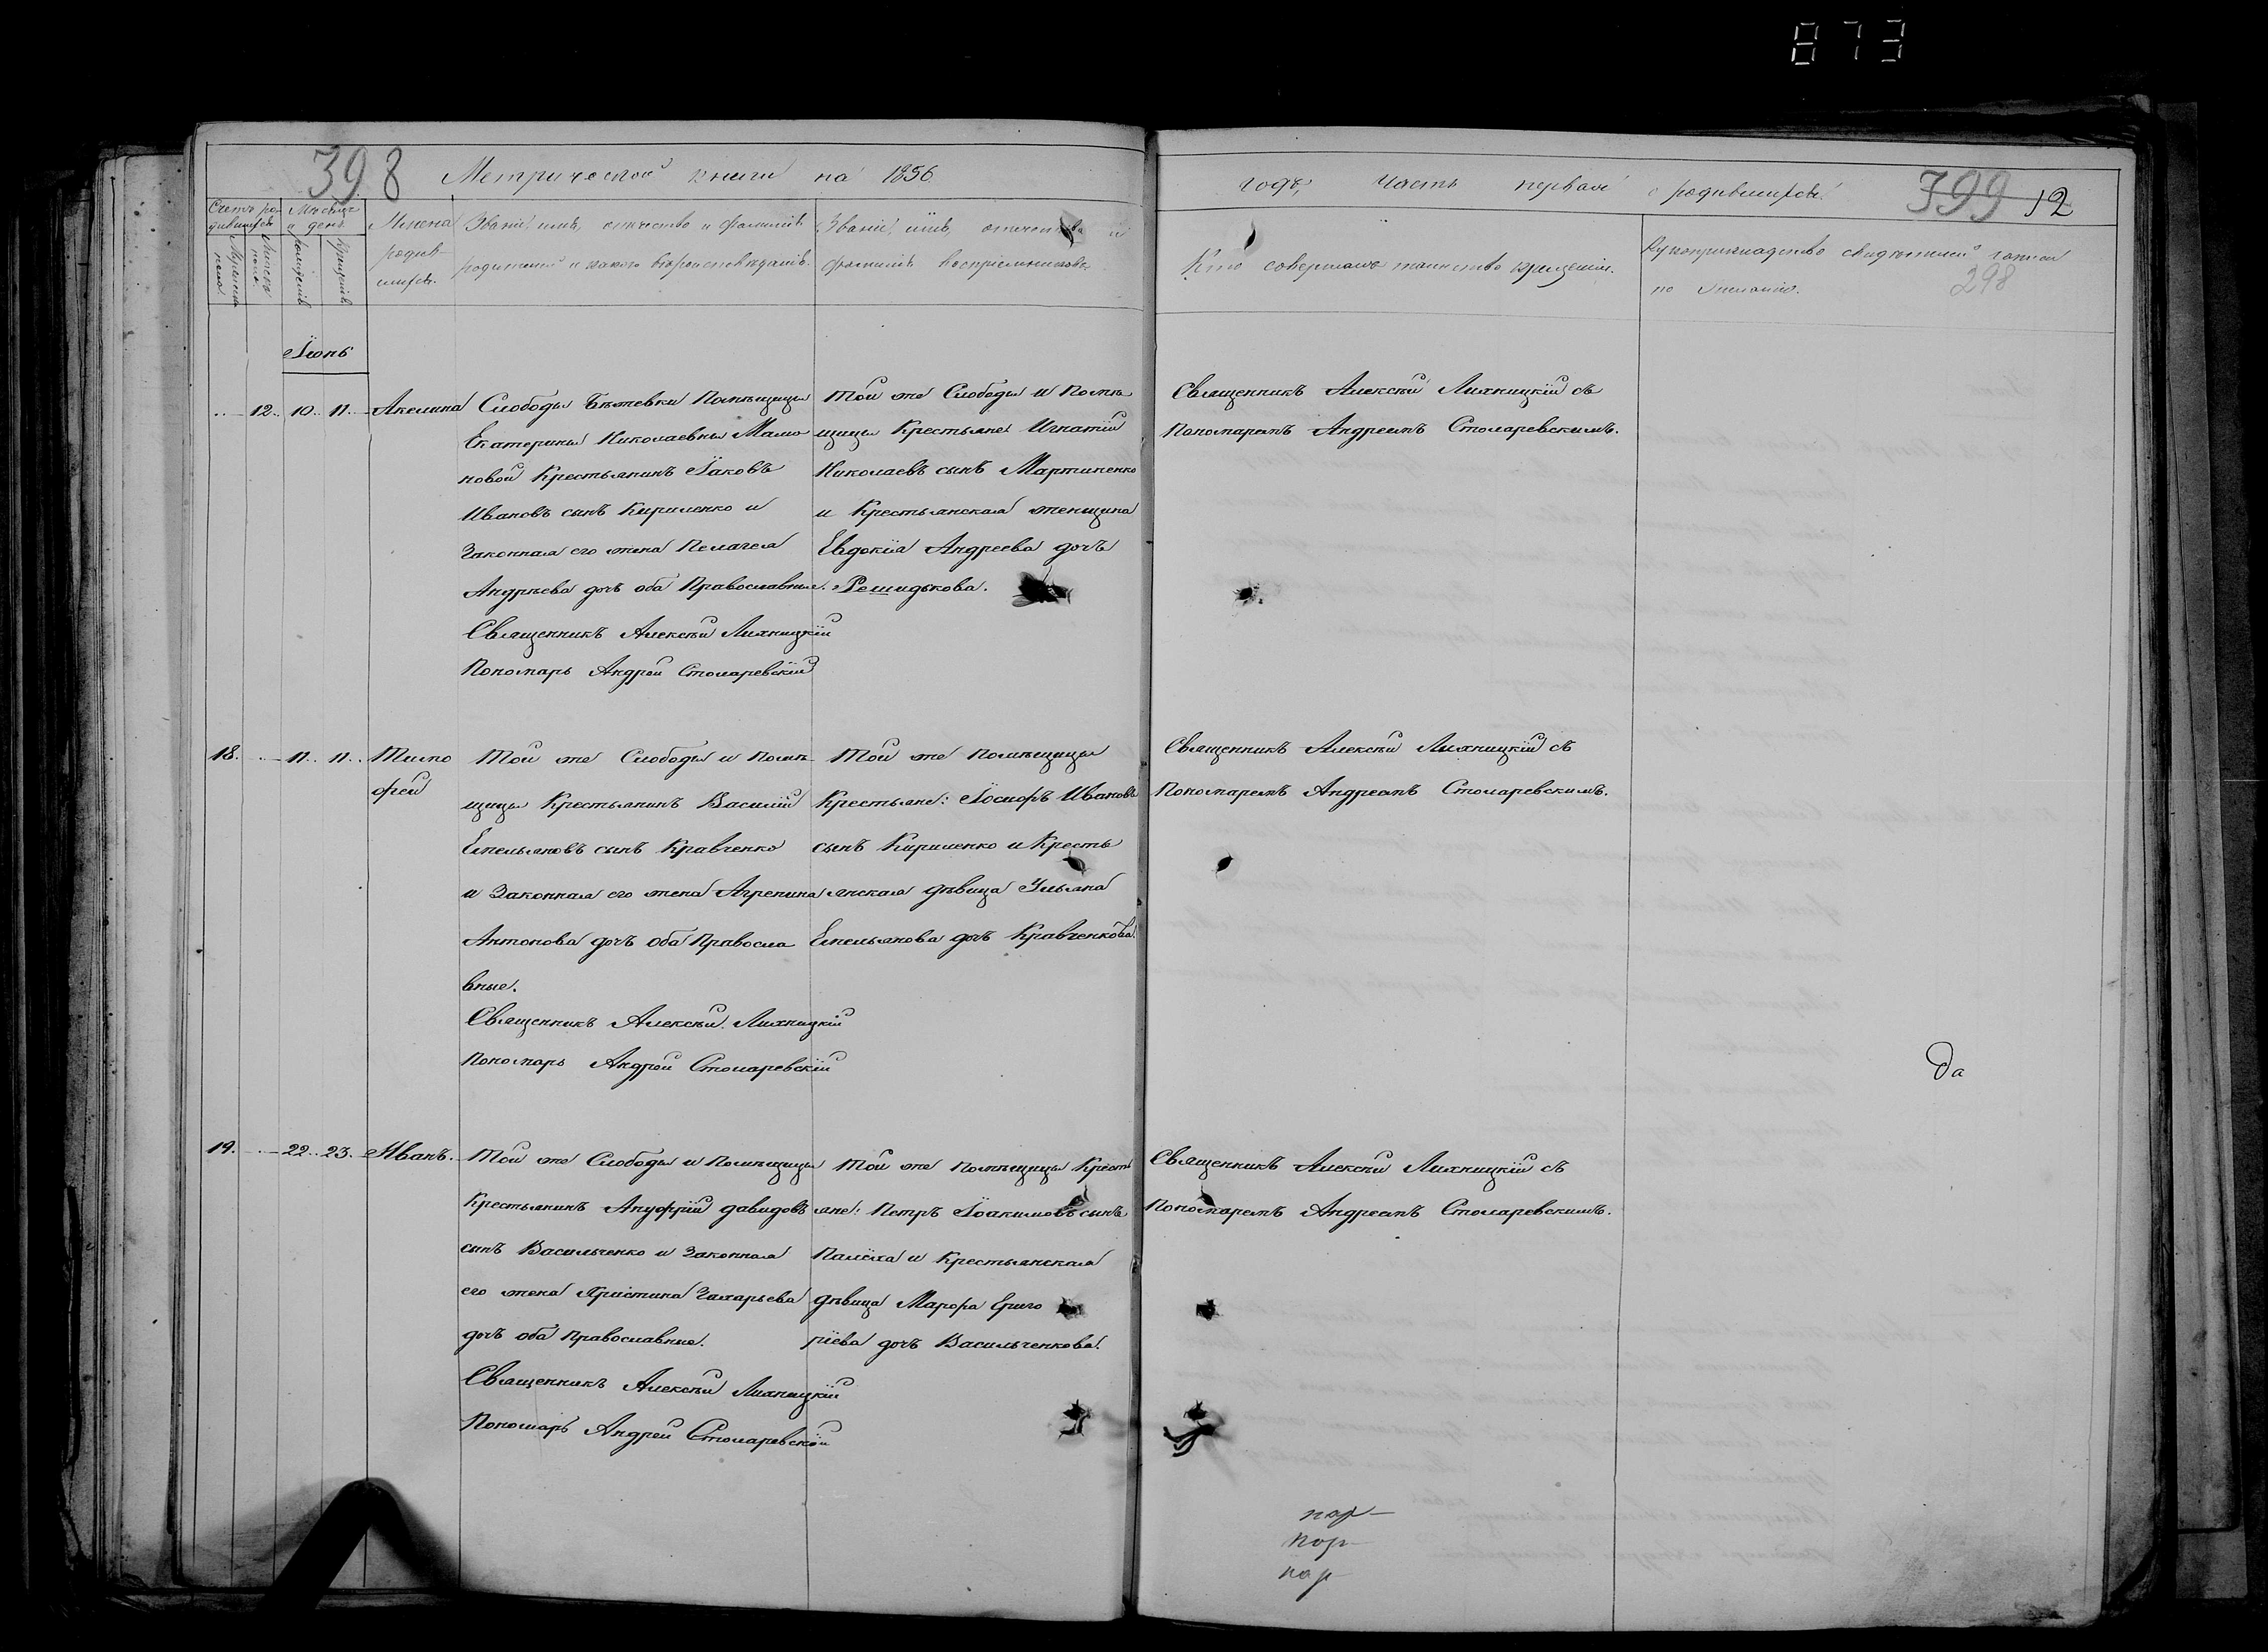 873
398
Метрической книги на 1856
годъ, часть первая о родившихся.
399 12
298
Счетъ ро-
дившихся
Мѣсяцъ
и день
Мужеска
пола
Женска
пола
рожденія
крещенія
Имена
родив-
шихся.
Званіе, имя, отчество и фамилія
родителей и какого вѣроисповѣданія.
Званіе, имя, отчество и
фамилія воспріемниковъ
Кто совершалъ таинство крещенія.
Рукоприкладство свидѣтелей записи
по желанію.
Іюнь
12. 10. 11. Акелина
Слободы Помѣщицы
Екатерины Николаевны Мамо
новой Крестьянинъ Іаковъ
Ивановъ сынъ Кириленко и
Законная его жена Пелагея
Андрѣева дочь оба Православные.
Священникъ Алексѣй Лихницкій
Пономарь Андрей Столаревскій
Той же Слободы и Помѣ
щицы Крестьяне Игнатій
Николаевъ сынъ Мартиненко
и Крестьянская женщина
Евдокія Андреева дочь
Решидькова.
Священникъ Алексѣй Лихницкій съ
Пономаремъ Андреемъ Столаревскимъ.
18. 11. 11. Тимо
фей
Той же Слободы и Помѣ
щицы Крестьянинъ Василій
Емельяновъ сынъ Кравченко
и Законная его жена Агрепина
Антонова дочь оба Правосла
вные.
Священникъ Алексѣй Лихницкій
Пономарь Андрей Столаревскій
Той же Помѣщицы
Крестьяне: Іосифъ Ивановъ
сынъ Кириленко и Кресть
янская дѣвица Ульяна
Емельянова дочь Кравченкова.
Священникъ Алексѣй Лихницкій съ
Пономаремъ Андреемъ Столаревскимъ.
Да
19. 22. 23. Иванъ.
Той же Слободы и Помѣщицы
Крестьянинъ Ануфрій давидовъ
сынъ Васильченко и Законная
его жена Христина Захарьева
дочь оба Православные.
Священникъ Алексѣй Лихницкій
Пономарь Андрей Столаревскій
Той же Помѣщицы Кресть
яне: Петръ Іоакимовъ сынъ
и Крестьянская
дѣвица Марфа Григо
ріева дочь Васильченкова.
Священникъ Алексѣй Лихницкій съ
Пономаремъ Андреемъ Столаревскимъ.
пор-
пор-
пор-